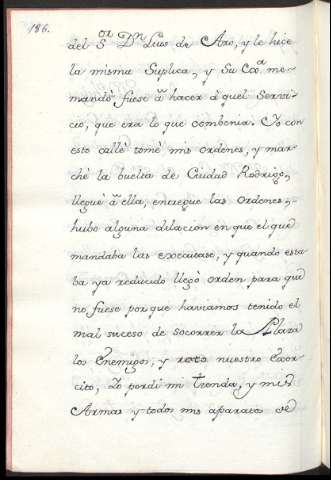 186.
del S.or D.n Luis de Aro, y le hice
la misma Suplica, y Su Exc.a me
mandó fuese á hacer á quel Servi-
cio, que era lo que combenia. Yo con
esto callé tomé mis ordenes, y mar-
ché la buelta de Ciudad Rodrigo,
llegué á ella, entregue las Ordenes,
hubo alguna dilacion en que el que
mandaba las execútase, y quando esta-
ba ya reducido llegó orden para que
no fuese por que haviamos tenido el
mal suceso de socorrer la Plaza
los Enemigos, y roto nuestro Exer-
cito, Yo perdi mi Tienda, y mis
Armas y todos mis aparatos de